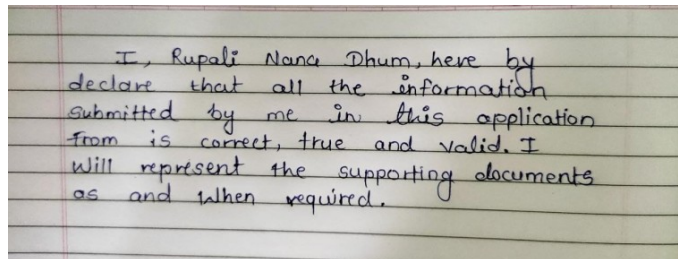 I, Rupali Nana Dhum, here by
declare that all the information
submitted by me in this application
from is correct, true and valid. I
Will represent the supporting documents
as and When required.